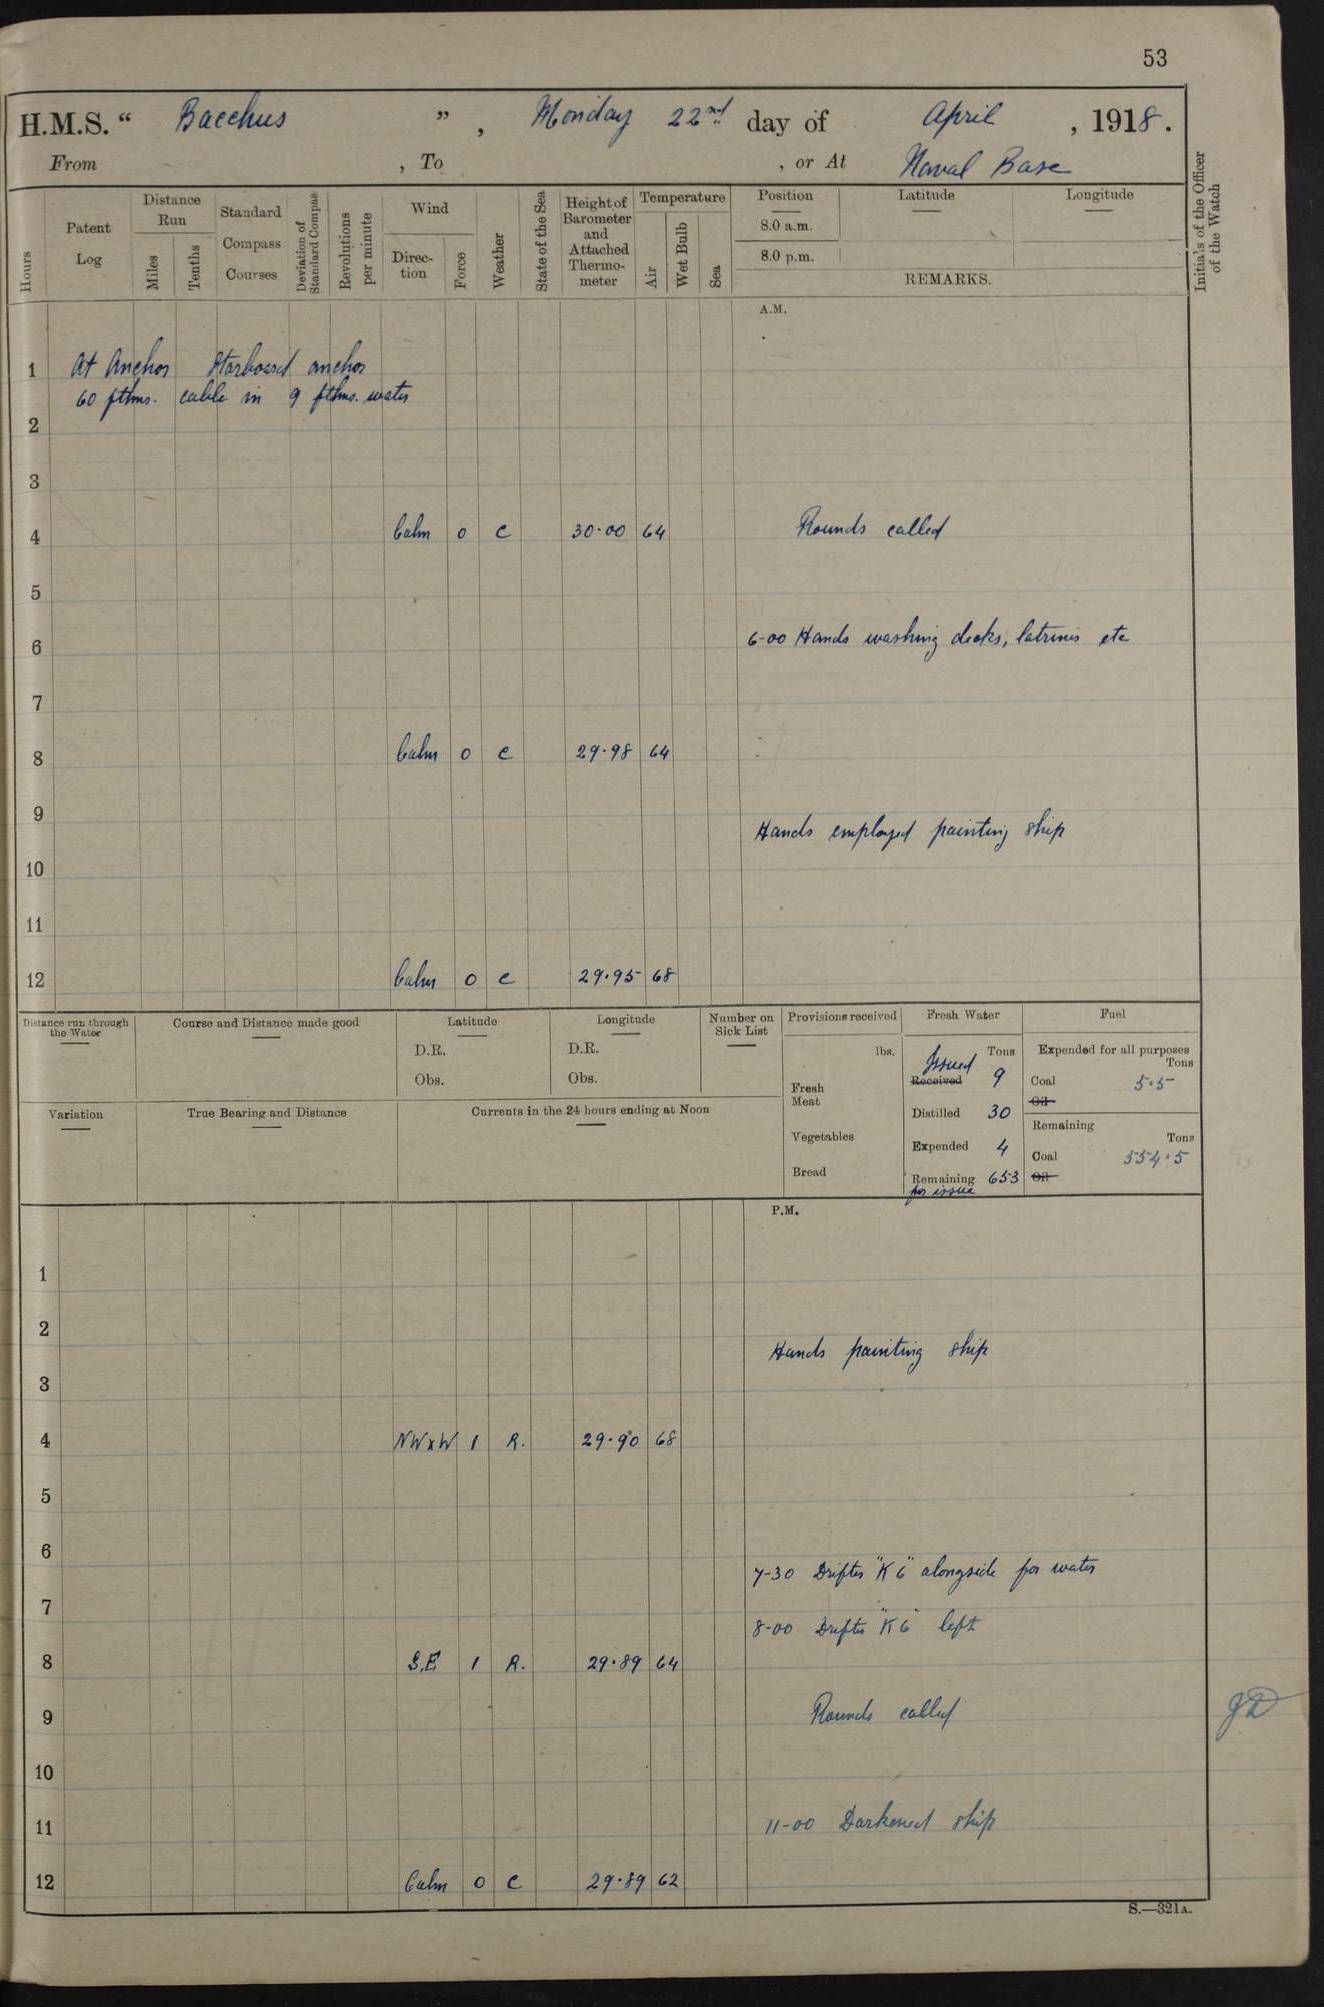 53
H.M.S. “ Bacchus ” , Monday 22nd day of April , 1918.
From , To , or At Naval Base
Hours
Patent Log
Distance Run
Miles
Tenths
Standard Compass Courses
Deviation of Standard Compass
Revolutions per minute
Wind
Direction
Force
Weather
State of the Sea
Height of Barometer and Attached Thermometer
Temperature
Air
Wet Bulb
Sea
Position
8.0 a.m.
8.0 p.m.
Latitude
Longitude
REMARKS.
Initials of the Officer of the Watch
A.M.
1 At Anchor Starboard anchor
60 fthms. cable in 9 fthms. water
2
3
4 Calm 0 c 30.00 64 Rounds called
5
6 6-00 Hands washing decks, latrines etc
7
8 Calm 0 c 29.98 64
9 Hands employed painting ship
10
11
12 Calm 0 c 29.95 68
Distance run through the Water
Course and Distance made good
Latitude
D.R.
Obs.
Longitude
D.R.
Obs.
Number on Sick List
Provisions received
lbs.
Fresh Meat
Vegetables
Bread
Fresh Water
Tons
Issued
Received 9
Distilled 30
Expended 4
Remaining 653
for issue
Fuel
Expended for all purposes
Tons
Coal 5.5
Oil
Remaining
Tons
Coal 554.5
Oil
Variation
True Bearing and Distance
Currents in the 24 hours ending at Noon
P.M.
1
2
Hands painting ship
3
4 NWxW 1 R. 29.90 68
5
6
7-30 Drifter "K6" alongside for water
7
8-00 Drifter "K6" left
8 S.E 1 R. 29.89 64
9 Rounds called
10
11 11-00 Darkened ship
12 Calm 0 c 29.89 62
S.—321A.